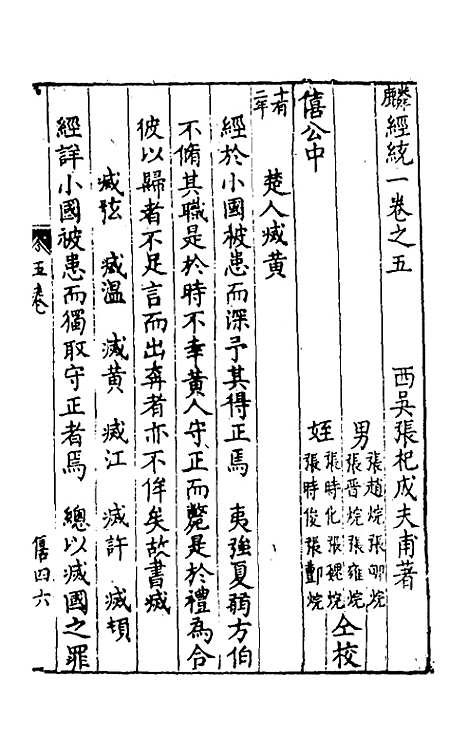 麟經統一卷之五　西吳張杞成夫甫著
男　張趙烷　張卿烷
張晋烷　張雍烷
姪　張時化　張魏烷
張時俊　張鄷烷　仝校
僖公中
十有二年
楚人㓕黃
經於小國被患而深予其得正焉　夷強夏弱方伯
不脩其職是於時不幸黃人守正而斃是於禮為合
彼以歸者不足言而出奔者亦不侔矣故書㓕
㓕弦　㓕溫　㓕黃　㓕江　㓕許　㓕頓
經詳小國被患而獨取守正者焉　總以㓕國之罪
五卷
僖四六